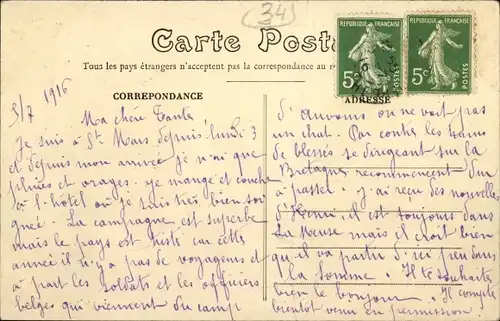 (34)
Carte Postale
Tous les pays étrangers n'acceptent pas la correspondance au
CORREPONDANCE
ADRESSE
RÉPUBLIQUE FRANÇAISE
5c
POSTES
RÉPUBLIQUE FRANÇAISE
5c
POSTES
5/7 1916
Ma chère Tante,
Je suis à St Mars depuis lundi 3
et depuis mon arrivée je n'ai que
pluies et orages. je mange et couche
à l'hôtel où je suis très bien soi
gnée. La campagne est superbe
mais le pays est triste car cette
année il n'y a pas de voyageurs et
à part les soldats et les officiers
belges qui viennent du camp
d'Auvours on ne voit pas
un chat. Par contre les trains
de blessés se dirigeant sur la
Bretagne recommencent d'un
à passer. j'ai reçu des nouvelles
d'Henri, il est toujours dans
la Meuse mais il croit bien
qu'il va partir d'ici peu dans
la Somme. Il te souhaite
bien le bonjour. Il compte
bientôt venir en permission.